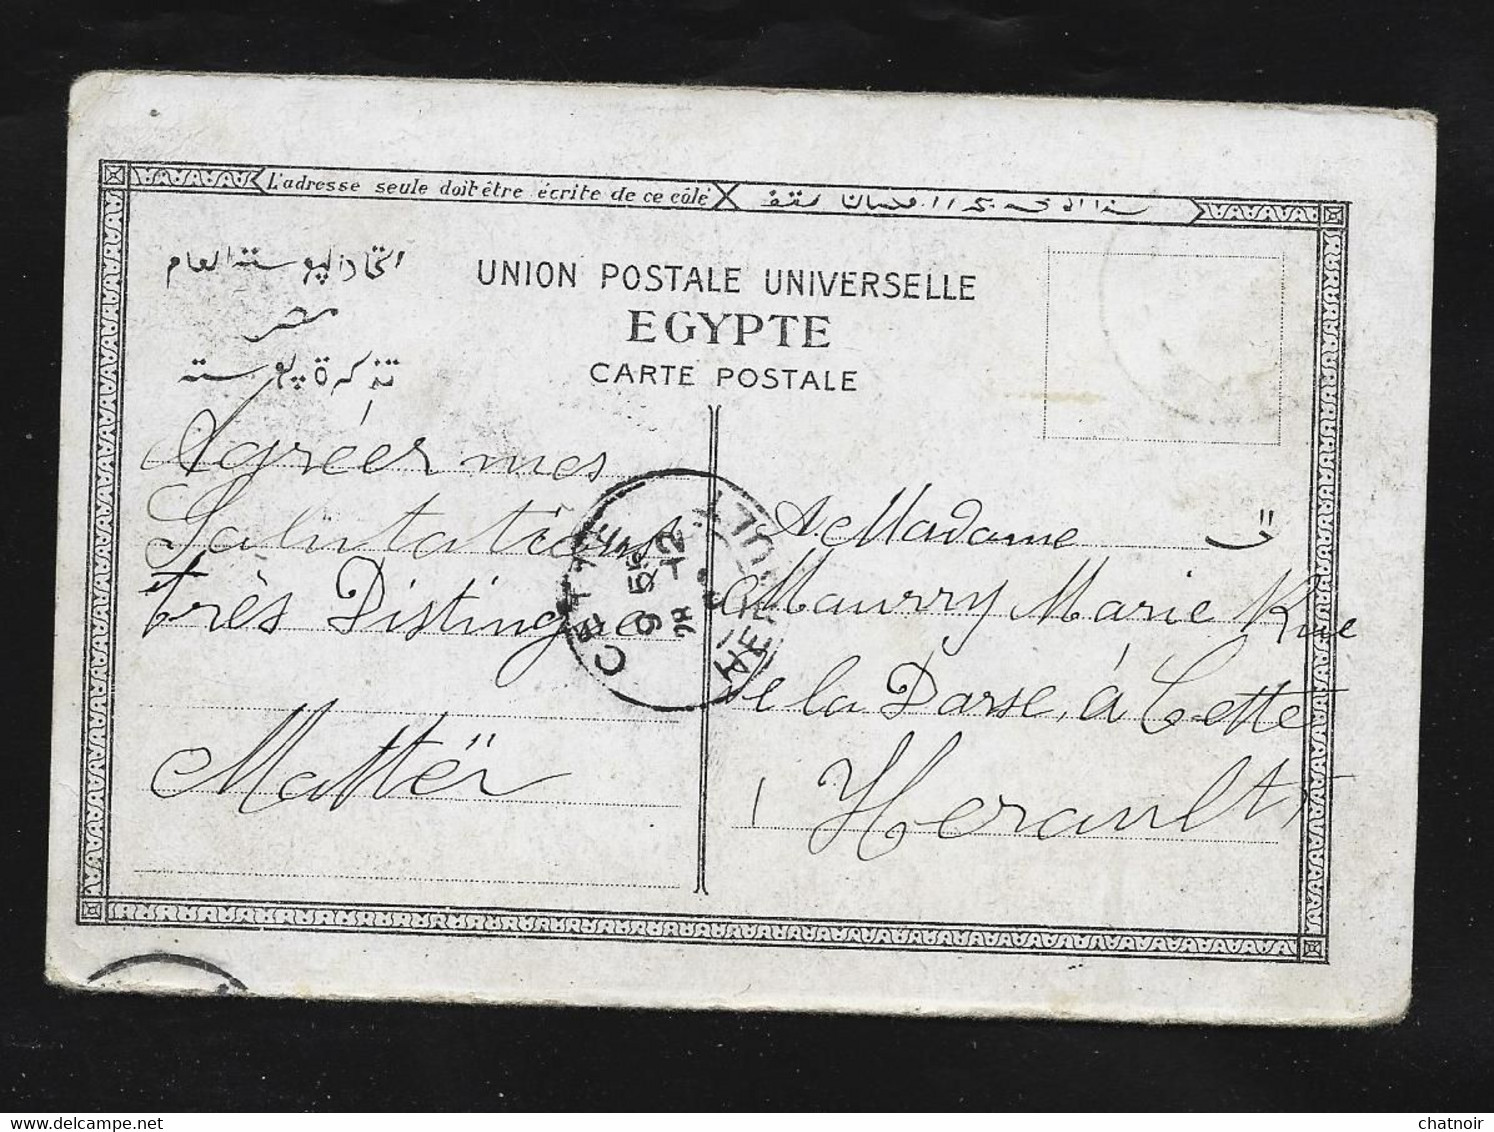 L'adresse seule doit être écrite de ce côté
اتحاد البوسته العام
مصر
تذكرة بوسته
UNION POSTALE UNIVERSELLE
EGYPTE
CARTE POSTALE
Agréer mes
Salutations
très Distingue
Mattër
A Madame
Maurry Marie Rue
de la Darse, à Cette
Herault
CETTE
9 55
28 -12
HERAULT
delcampe.net
chatnoir